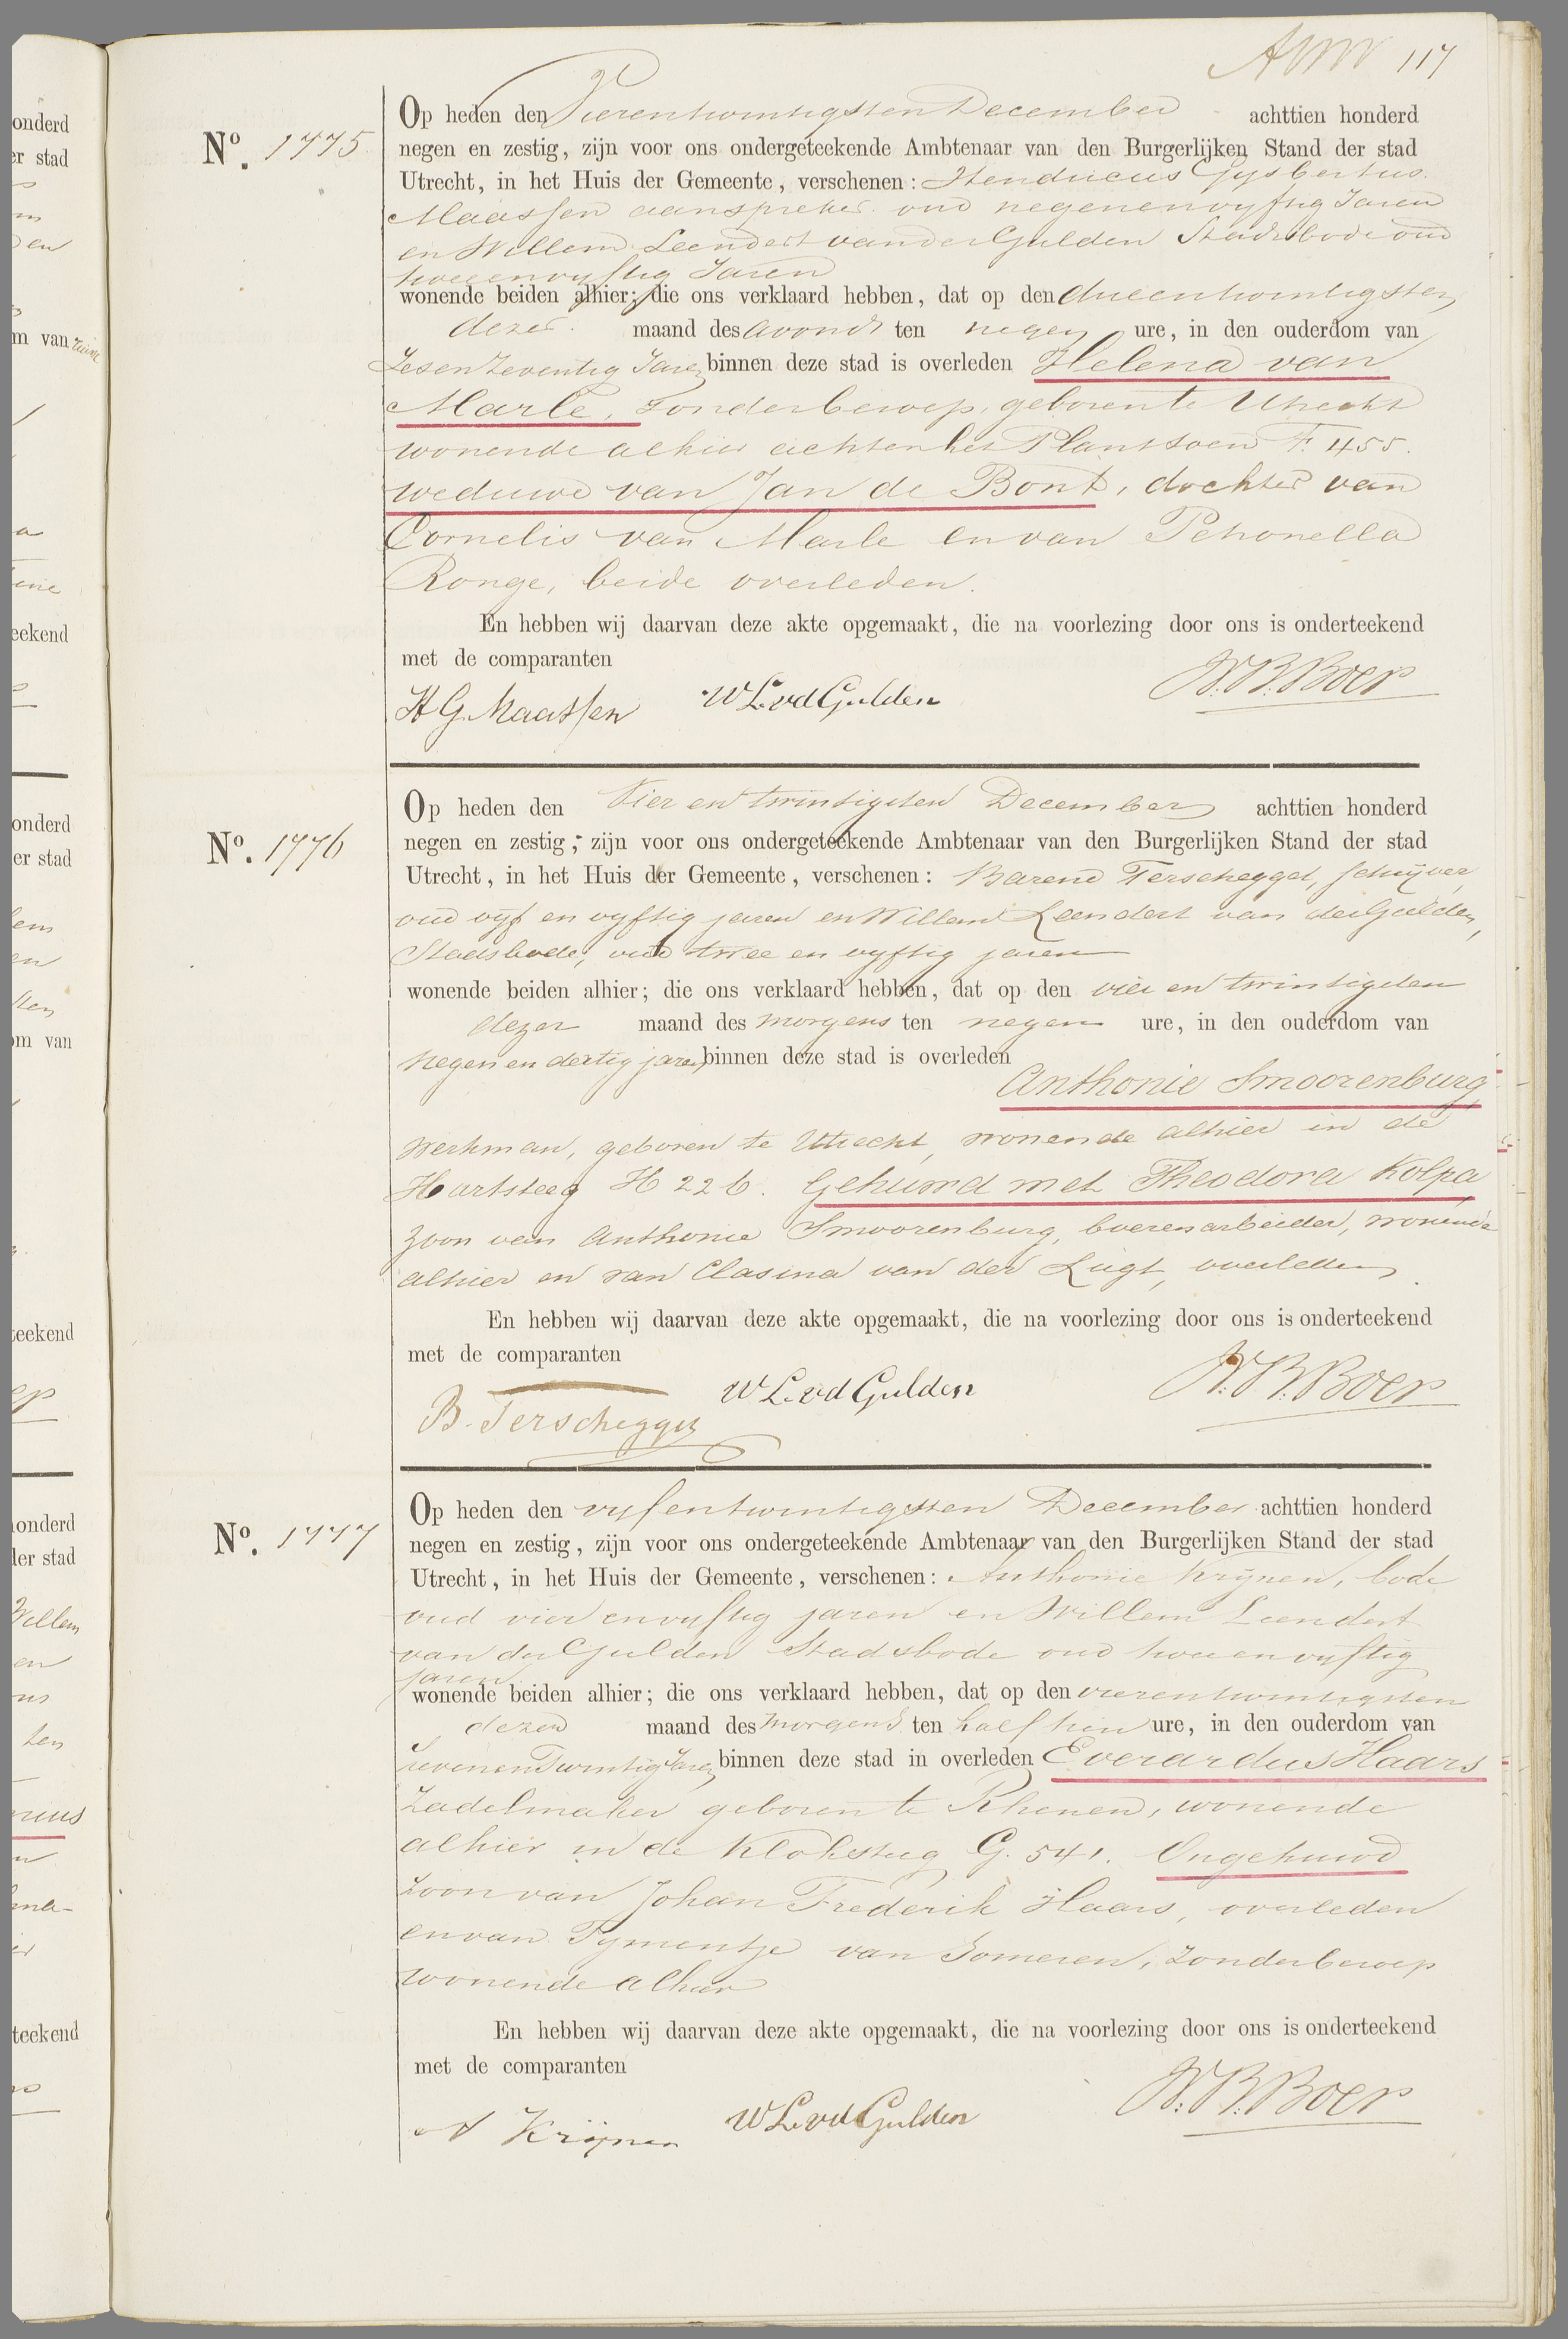 117
Op heden den Vierentwintigsten December achttien honderd
No. 1775
negen en zestig, zijn voor ons ondergeteekende Ambtenaar van den Burgerlijken Stand der stad
Utrecht, in het Huis der Gemeente, verschenen: Hendricus Gysbertus
Maassen aanspreker oud negenenvyftig Jaren
en Willem Leendert van der Gulden Stadsbode oud
tweeenvyftig Jaren
wonende beiden alhier; die ons verklaard hebben, dat op den drieentwintigsten
dezer maand des avonds ten negen ure, in den ouderdom van
Zesenzeventig Jaren binnen deze stad is overleden Helena van
Marle, zonder beroep, geboren te Utrecht
wonende alhier achter het Plantsoen F. 455.
weduwe van Jan de Bont, dochter van
Cornelis van Marle en van Petronella
Ronge, beide overleden.
En hebben wij daarvan deze akte opgemaakt, die na voorlezing door ons is onderteekend
met de comparanten
H G Maassen W L. vd Gulden W. B. Boer
Op heden den Vier en twintigsten December achttien honderd
No. 1776
negen en zestig, zijn voor ons ondergeteekende Ambtenaar van den Burgerlijken Stand der stad
Utrecht, in het Huis der Gemeente, verschenen: Barend Terschegget, schrijver,
oud vijf en vyftig jaren en Willem Leendert van der Gulden,
Stadsbode, oud twee en vyftig jaren
wonende beiden alhier; die ons verklaard hebben, dat op den vier en twintigsten
dezer maand des morgens ten negen ure, in den ouderdom van
negen en dertig jaren binnen deze stad is overleden
Anthonie Smoorenburg
werkman, geboren te Utrecht, wonende alhier in de
Hartsteeg H 226. Gehuwd met Theodora Kolpa
zoon van Anthonie Smoorenburg, boerenarbeider, wonende
alhier en van Clasina van der Lugt, overleden.
En hebben wij daarvan deze akte opgemaakt, die na voorlezing door ons is onderteekend
met de comparanten
B. Terschegget W L. vd Gulden W. B. Boer
Op heden den vyfentwintigsten December achttien honderd
No. 1777
negen en zestig, zijn voor ons ondergeteekende Ambtenaar van den Burgerlijken Stand der stad
Utrecht, in het Huis der Gemeente, verschenen: Anthonie Krijnen, bode
oud vier envyftig jaren en Willem Leendert
van der Gulden Stadsbode oud tweeenvyftig
jaren
wonende beiden alhier; die ons verklaard hebben, dat op den vierentwintigsten
dezer maand des morgens ten half tien ure, in den ouderdom van
zevenentwintig Jaren binnen deze stad in overleden Everardus Haars
Zadelmaker geboren te Rhenen, wonende
alhier in de Kloksteeg G. 541. Ongehuwd
zoon van Johan Frederik Haars, overleden
en van Tymentje van Someren, zonder beroep
wonende alhier
En hebben wij daarvan deze akte opgemaakt, die na voorlezing door ons is onderteekend
met de comparanten
A Krijnen W L. vd Gulden W. B. Boer